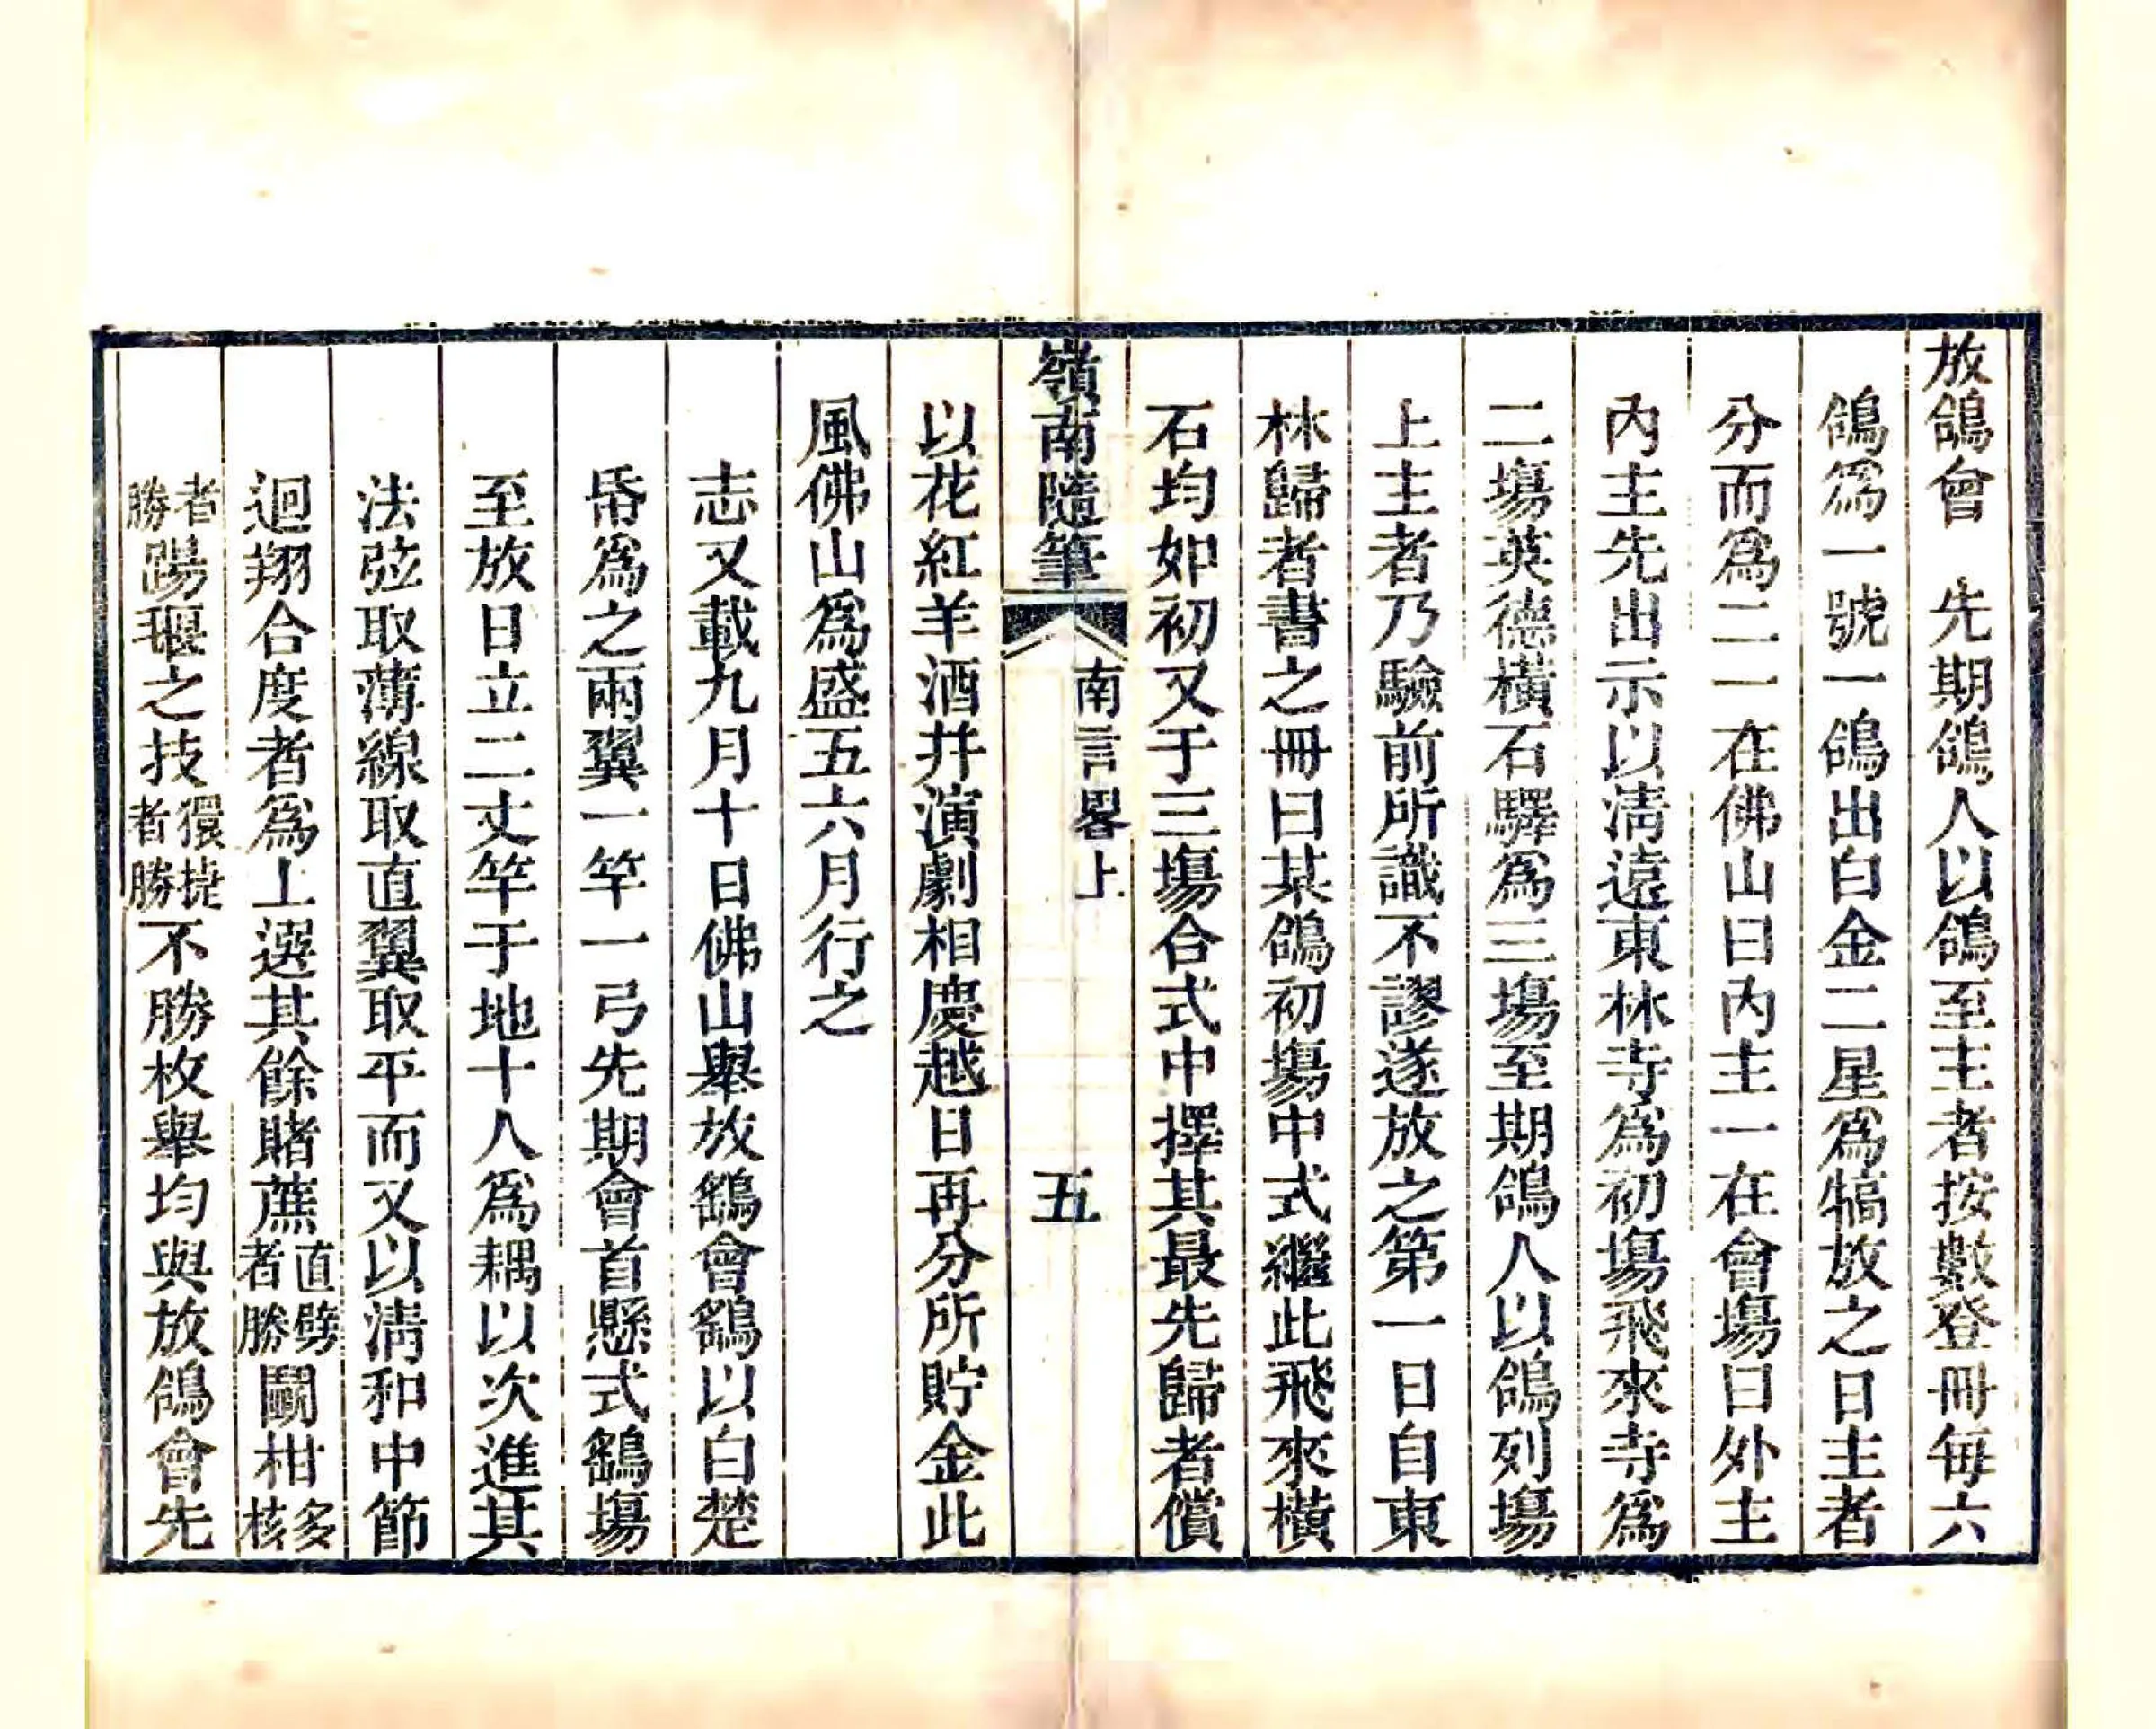 放鴿會　先期鴿人以鴿至主者按數登冊每六
鴿爲一號一鴿出白金二星爲犒放之日主者
分而爲二一在佛山曰內主一在會塲曰外主
內主先出示以淸遠東林寺爲初塲飛來寺爲
二塲英德橫石驛爲三塲至期鴿人以鴿列塲
上主者乃驗前所識不謬遂放之第一日自東
林歸者書之冊曰某鴿初塲中式繼此飛來橫
石均如初又于三塲合式中擇其最先歸者償
嶺南隨筆
南言畧上
五
以花紅羊酒幷演劇相慶越日再分所貯金此
風佛山爲盛五六月行之
志又載九月十日佛山舉放鷂會鷂以白楚
帋爲之兩翼一竿一弓先期會首懸式鷂塲
至放日立二丈竿于地十人爲耦以次進其
法弦取薄線取直翼取平而又以淸和中節
迴翔合度者爲上選其餘賭蔗直劈者勝鬭柑多核
者勝踢䃼之技獧捷者勝不勝枚舉均與放鴿會先